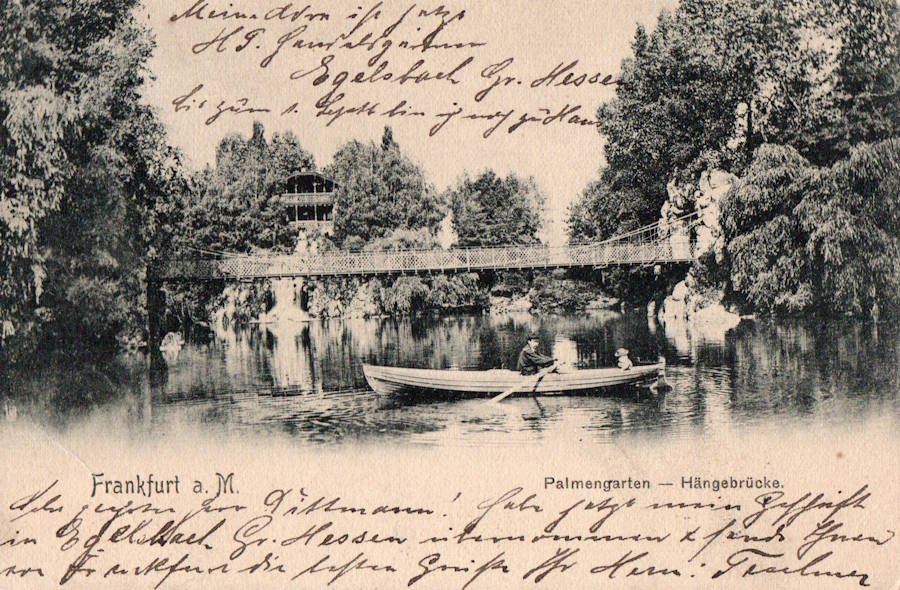 Meine Adr. ist jetzt
H. F. Handelsgärtn
Egelsbach Gr. Hessen
bis zum 1. Sept. bin ich noch zu Hau
Frankfurt a. M.
Palmengarten — Hängebrücke.
Sehr geehrter Herr Dittmann! Habe jetzt mein Geschäft
in Egelsbach Gr. Hessen übernommen & sende Ihnen
vor Frankfurt die besten Grüße Ihr Herm: